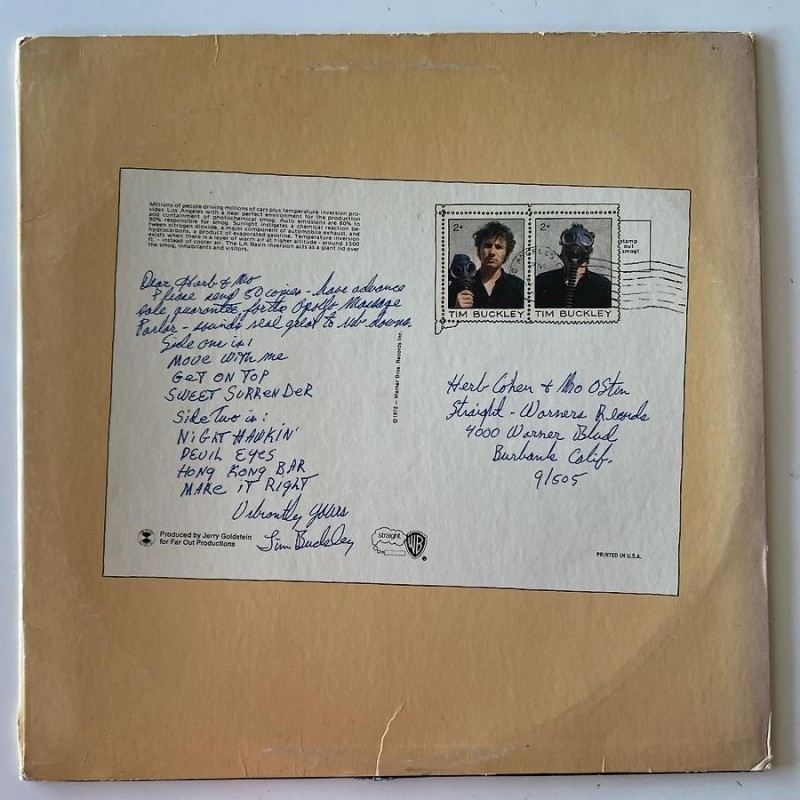 Millions of people driving millions of cars plus temperature inversion pro-
vides Los Angeles with a near perfect environment for the production
and containment of photochemical smog. Auto emissions are 80% to
90% responsible for smog. Sunlight instigates a chemical reaction be-
tween nitrogen dioxide, a major component of automobile exhaust, and
hydrocarbons, a product of evaporated gasoline. Temperature inversion
exists when there is a layer of warm air at higher altitude - around 1500
ft. - instead of cooler air. The LA Basin inversion acts as a giant lid over
the smog, inhabitants and visitors.
2¢
2¢
TIM BUCKLEY
TIM BUCKLEY
stamp
out
smog!
Dear Herb & Mo
Please send 50 copies - have advance
sale guarantee for the Apollo Massage
Parlor - sounds real great to
Side one is:
MOVE WITH ME
GET ON TOP
SWEET SURRENDER
Side Two is:
NIGHT HAWKIN'
DEVIL EYES
HONG KONG BAR
MAKE IT RIGHT
Vibrantly yours
Tim Buckley
©1972 - Warner Bros. Records Inc.
Herb Cohen & Mo Ostin
Straight - Warners Records
4000 Warner Blvd
Burbank Calif.
91505
Produced by Jerry Goldstein
for Far Out Productions
straight
WB
®
PRINTED IN U.S.A.